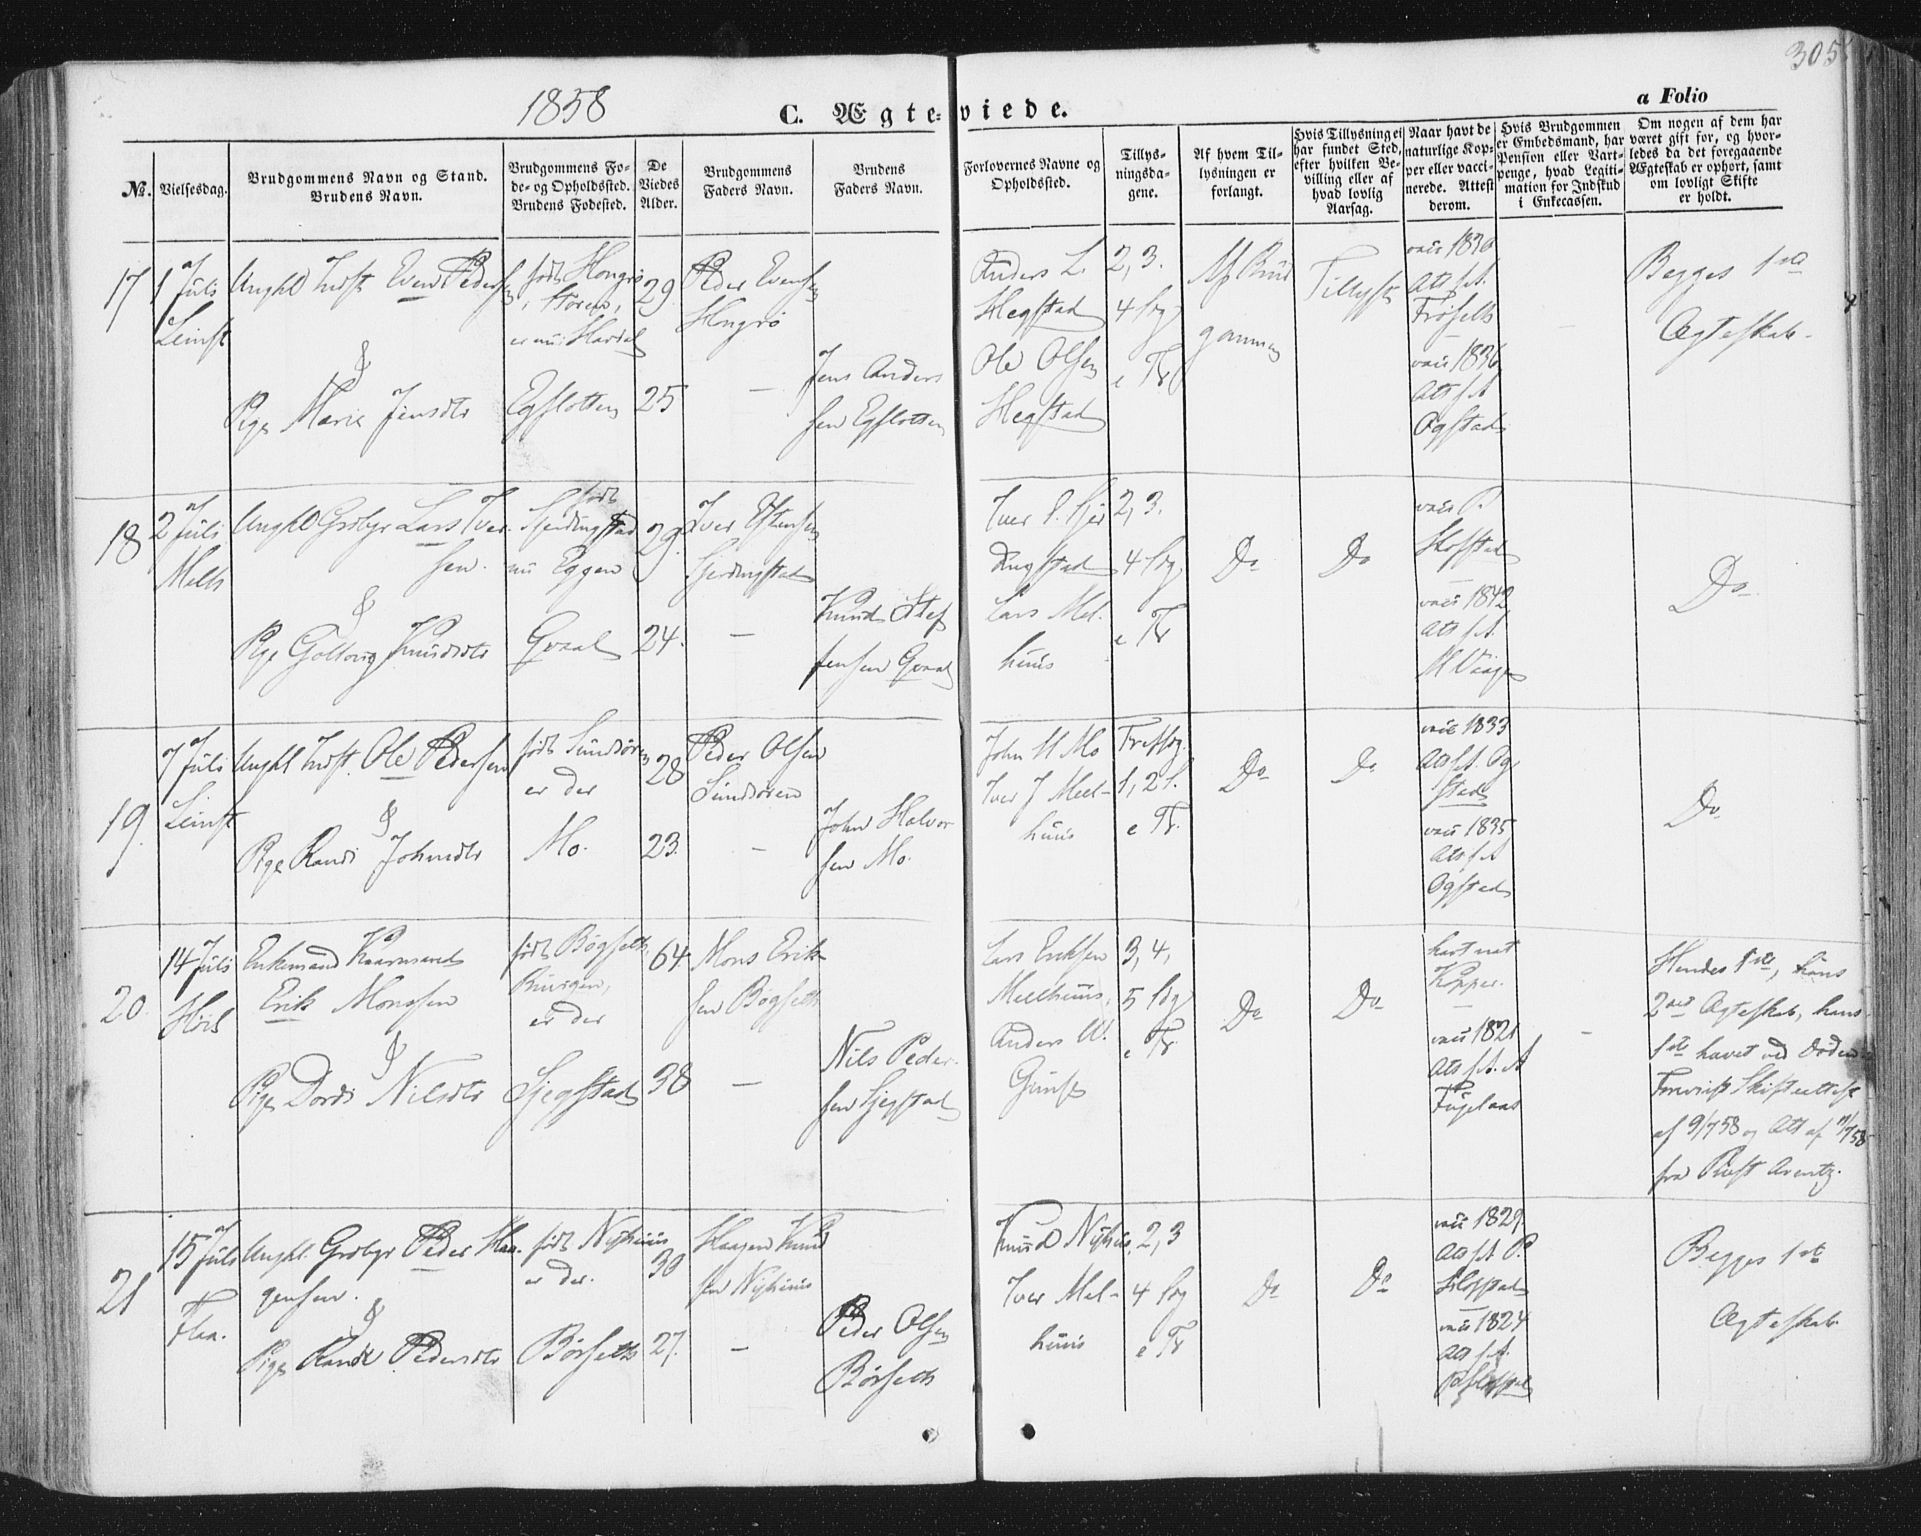 305
1858
C. Ægteviede.
a Folio
No.
Vielsesdag.
Brudgommens Navn og Stand.
Brudens Navn.
Brudgommens Fo-
de- og Opholdssted.
Brudens Fodested.
De
Viedes
Alder.
Brudgommens
Faders Navn.
Brudens
Faders Navn.
Forlovernes Navne og
Opholdssted.
Tillys-
ningsda-
gene.
Af hvem Til-
lysningen er
forlangt.
Hvis Tillysning ei
har fundet Sted,
efter hvilken Be-
villing eller af
hvad lovlig
Aarsag.
Naar havt de
naturlige Kop-
per eller vacci-
nerede. Attest
derom.
Hvis Brudgommen
er Embedsmand, har
Pension eller Vart-
penge, hvad Legiti-
mation for Indskud
i Enkecassen.
Om nogen af dem har
været gift for, og hvor-
ledes da det foregaaende
Ægteskab er ophort, samt
om lovligt Skifte
er holdt.
17
1 Juli
Leinst
Ungkl Indst Even Peders
&
Pige Marie Jensdtr
født Hongrø
i Støren,
er nu
Egslotten
29
25
Peder Evensen
Hongrø
Jens Anders
sen Egslotten
Anders L.
Hegstad
Ole Olsen
Hegstad
2, 3.
4 Sg
e Tr
Af Brud
gommen
Tillyst
vacc 1830
Atts f. A.
Frøseth
vacc 1836
Atts f. A
Øgstad
Begges 1ste
Ægteskab.
18
2 Juli
Melh
Ungkl Grdbgr Lars Iver
sen.
&
Pige Golloug Knudsdtr
født
nu Eggen
Qvaal
29
24.
Iver Estensen
Gjerdingstad
Knud Stef
fensen Qvaal
Iver
dingstad
Lars Mel
huus
2, 3.
4 Sg
e Tr
Do
Do
vacc P.
Skofstad
vacc 1842
Atts f. A.
M Vaage
Do
19.
7 Juli
Leinst
Ungkl Indst. Ole Pedersen
&
Pige Randi Johnsdtr
født Sundsøren
er der
Mo.
28
23.
Peder Olsen
Sundsøren
John Halvor
sen Mo.
John H Mo
Iver J Meel-
huus
1, 2 S.
e Tr.
Do
Do
vacc 1833
Atts f. A. Øg
stad
vacc 1835
Atts f. A
Øgstad
Do
20.
14 Juli
Høil
Enkemand Kaarmand
Erik Monssen
&
Pige Dordi Nilsdtr
født Bøgseth
er der
Sjegstad
64
38
Mons Erik
sen Bøgseth
Nils Peder-
sen Sjegstad
Lars Eriksen
Meelhuus.
Anders W.
Gimse
3, 4,
5 Sg
e Tr
Do
Do
havt nat
Kopper.
vacc 1821
Atts f. A. A
Fuglaas
Hendes 1ste, hans
2det Ægteskab, hans
1ste hævet ved Døden
Foreviist Skifteattest
af 9/7 58 og Att af
fra Præst Arentz.
21
15 Juli
Flaa.
Ungkl. Grdbgr Peder Haa-
gensen.
&
Pige Randi Pedersdtr
født Nyhuus
er der.
Børseth
30
27.
Haagen Knud
sen Nyhuus
Peder Olsen
Børseth
Knud Nyhuus
Iver Mel-
huus
2, 3
4 Sg
e Tr
Do
Do
vacc 1829
Atts f. A. P.
Kloppal
vacc 1824
Atts f. A.
Begges 1ste
Ægteskab